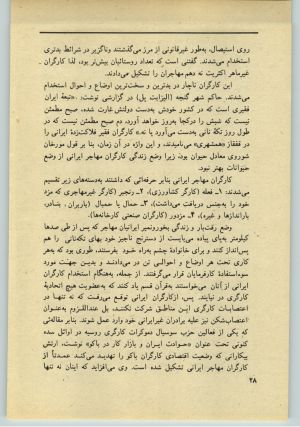 روی استیصال، به‌طور غیرقانونی از مرز می‌گذشتند وناگزیر در شرائط بدتری
استخدام می‌شدند. گفتنی است که تعداد روستائیان بیش‌تر بود، لذا کارگران
غیرماهر اکثریت نه دهم مهاجران را تشکیل می‌دادند.
این کارگران ناچار در بدترین و سخت‌ترین اوضاع و احوال استخدام
می‌شدند. حاکم شهر گنجه (الیزابت پل) در گزارشی نوشت: «تبعهٔ ایران
فقیری است که در کشور خودش بدست دولتش غارت شده، صبح مطمئن
نیست که شبش را درکجا به‌روز خواهد آورد، دم صبح مطمئن نیست که در
طول روز تکهٔ نانی بدست می‌آورد یا نه.» کارگران فقیر فلاکت‌زدهٔ ایرانی را
در قفقاز «همشهری» می‌نامیدند، و این واژه در آن زمان، بنا بر قول مورخان
شوروی معادل حیوان بود، زیرا وضع زندگی کارگران مهاجر ایرانی از وضع
حیوانات بهتر نبود.
کارگران مهاجر ایرانی بنابر حرفه‌ای که داشتند به‌دسته‌های زیر تقسیم
می‌شدند: ۱ـ فعله (کارگر کشاورزی) ۲ـ رنجبر (کارگر غیرمهاجری که مزد
خود را به‌جنس دریافت می‌داشت)، ۳ـ حمال یا حمبال (باربران، بنادر،
باراندازها و غیره)، ۴ـ مزدور (کارگران صنعتی کارخانه‌ها).
وضع رقت‌بار و زندگی بخورونمیر ایرانیان مهاجر که پس از طی صدها
کیلومتر به‌پای پیاده می‌بایست از دسترنج ناچیز خود بهای تکه‌نانی را هم
پس‌انداز کنند و برای خانوادهٔ چشم به‌راه خود بفرستند، طوری بود که به‌هر
کاری تحت هر اوضاع و احوالی تن در می‌دادند و بدین جهت مورد
سوءاستفادهٔ کارفرمایان قرار می‌گرفتند. از جمله، به‌هنگام استخدام کارگران
ایرانی از آنان می‌خواستند به‌قرآن قسم یاد کنند که به‌عضویت هیچ اتحادیهٔ
کارگری در نیایند. پس ازکارگران ایرانی توقع می‌رفت که نه تنها در
اعتصابات کارگری این مناطق شرکت نکنند، بل عنداللزوم به‌عنوان
اعتصاب‌شکن نیز علیه برادران غیرایرانی خود وارد عمل شوند. بنابر مقاله‌ئی
که یکی از فعالین حزب سوسیال دموکرات کارگری روسیه در اوائل سده
کنونی تحت عنوان «حوادث ایران و بازار کار در باکو» نوشت، ارتش
بیکارانی که وضعیت اقتصادی کارگران باکو را تهدید می‌کند عمدتاً از
کارگران مهاجر ایرانی تشکیل شده است. وی می‌افزاید که اینان نه تنها
۲۸